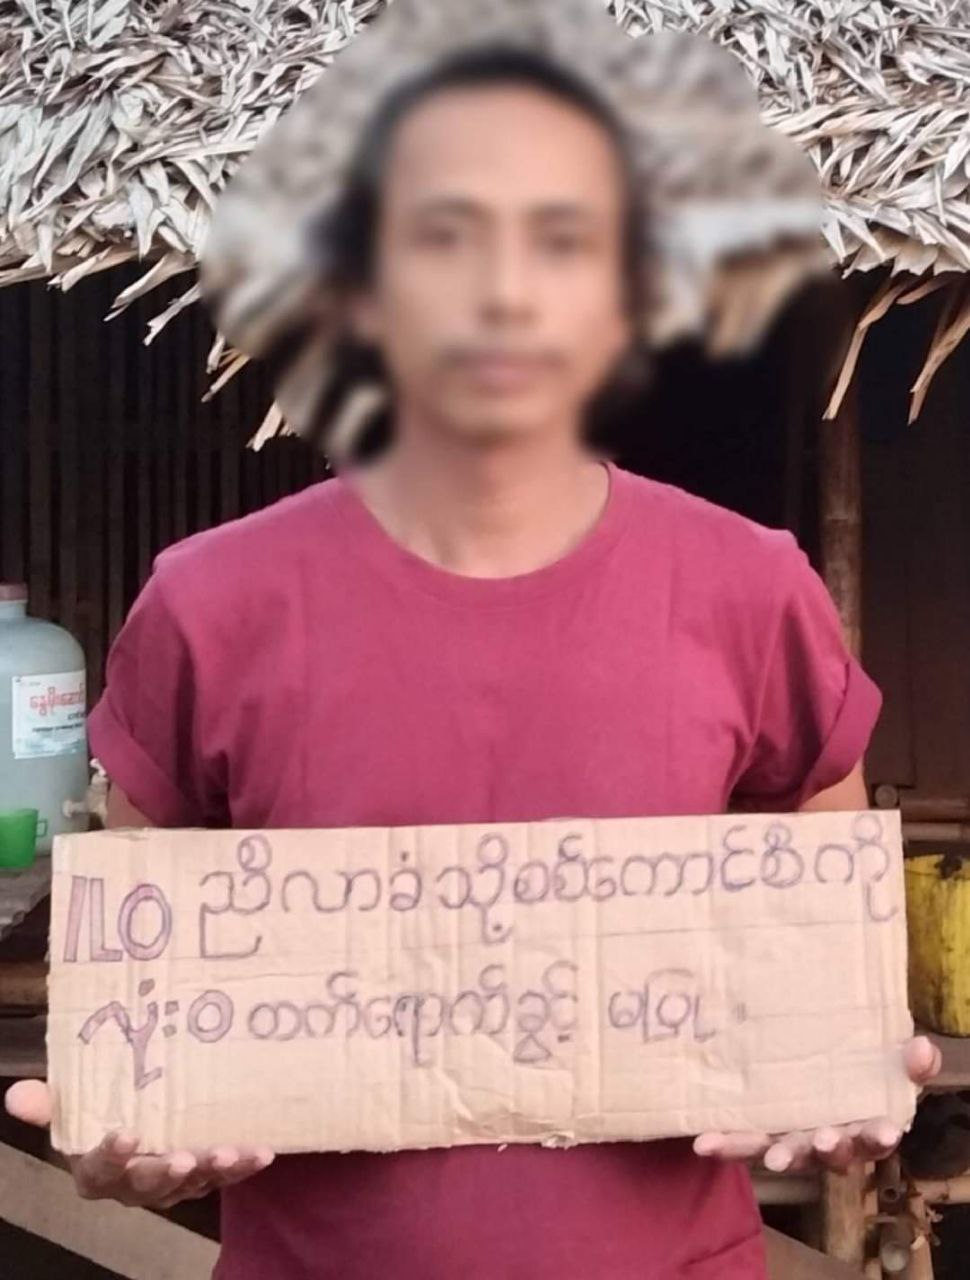 ILO ညီလာခံသို့စစ်ကောင်စီကို
လုံး၀တက်ရောက်ခွင့် မပြု။